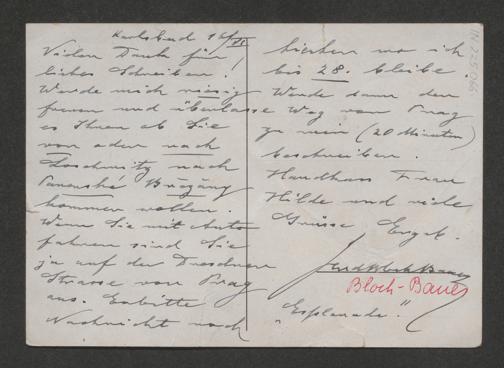 Karlsbad 16/
Vielen Dank für
liebes Schreiben!
Werde mich riesig
freuen und überlasse
es Ihnen ob Sie
von oder nach
Loschwitz nach
Panenské Břežany
kommen wollen.
Wenn Sie mit Auto
fahren sind Sie
ja auf der Dresdner
Strasse von Prag
aus. Erbitte
Nachricht noch
hierher wo ich
bis 28. bleibe.
Werde dann den
Weg von Prag
zu mir (20 Minuten)
beschreiben.
Handkuss Frau
Hilde und viele
Grüsse Ergeb.
Bloch-Bauer
"Esplanade."